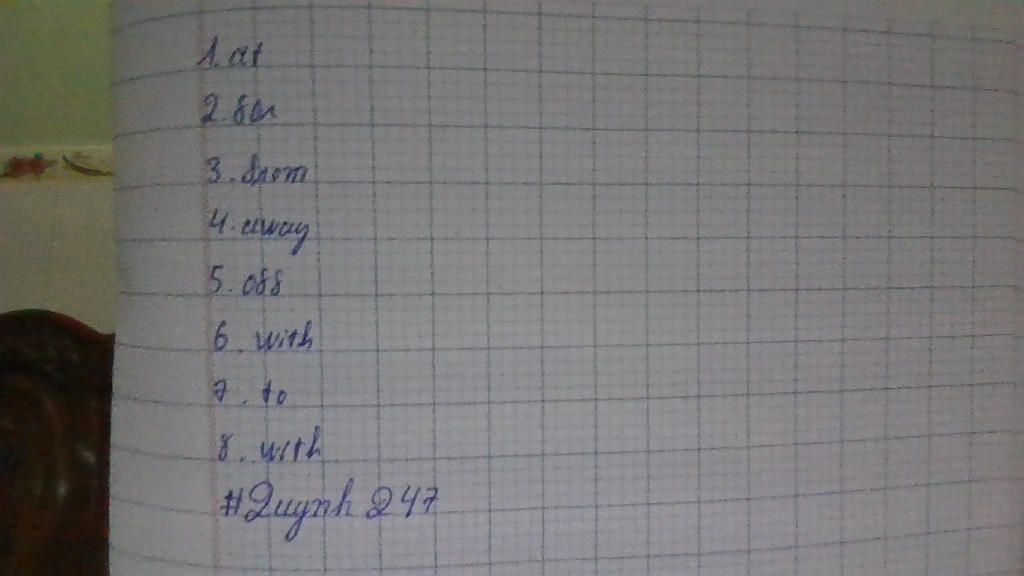 1. at
2. for
3. from
4. away
5. off
6. with
7. to
8. with
#Quynh 247